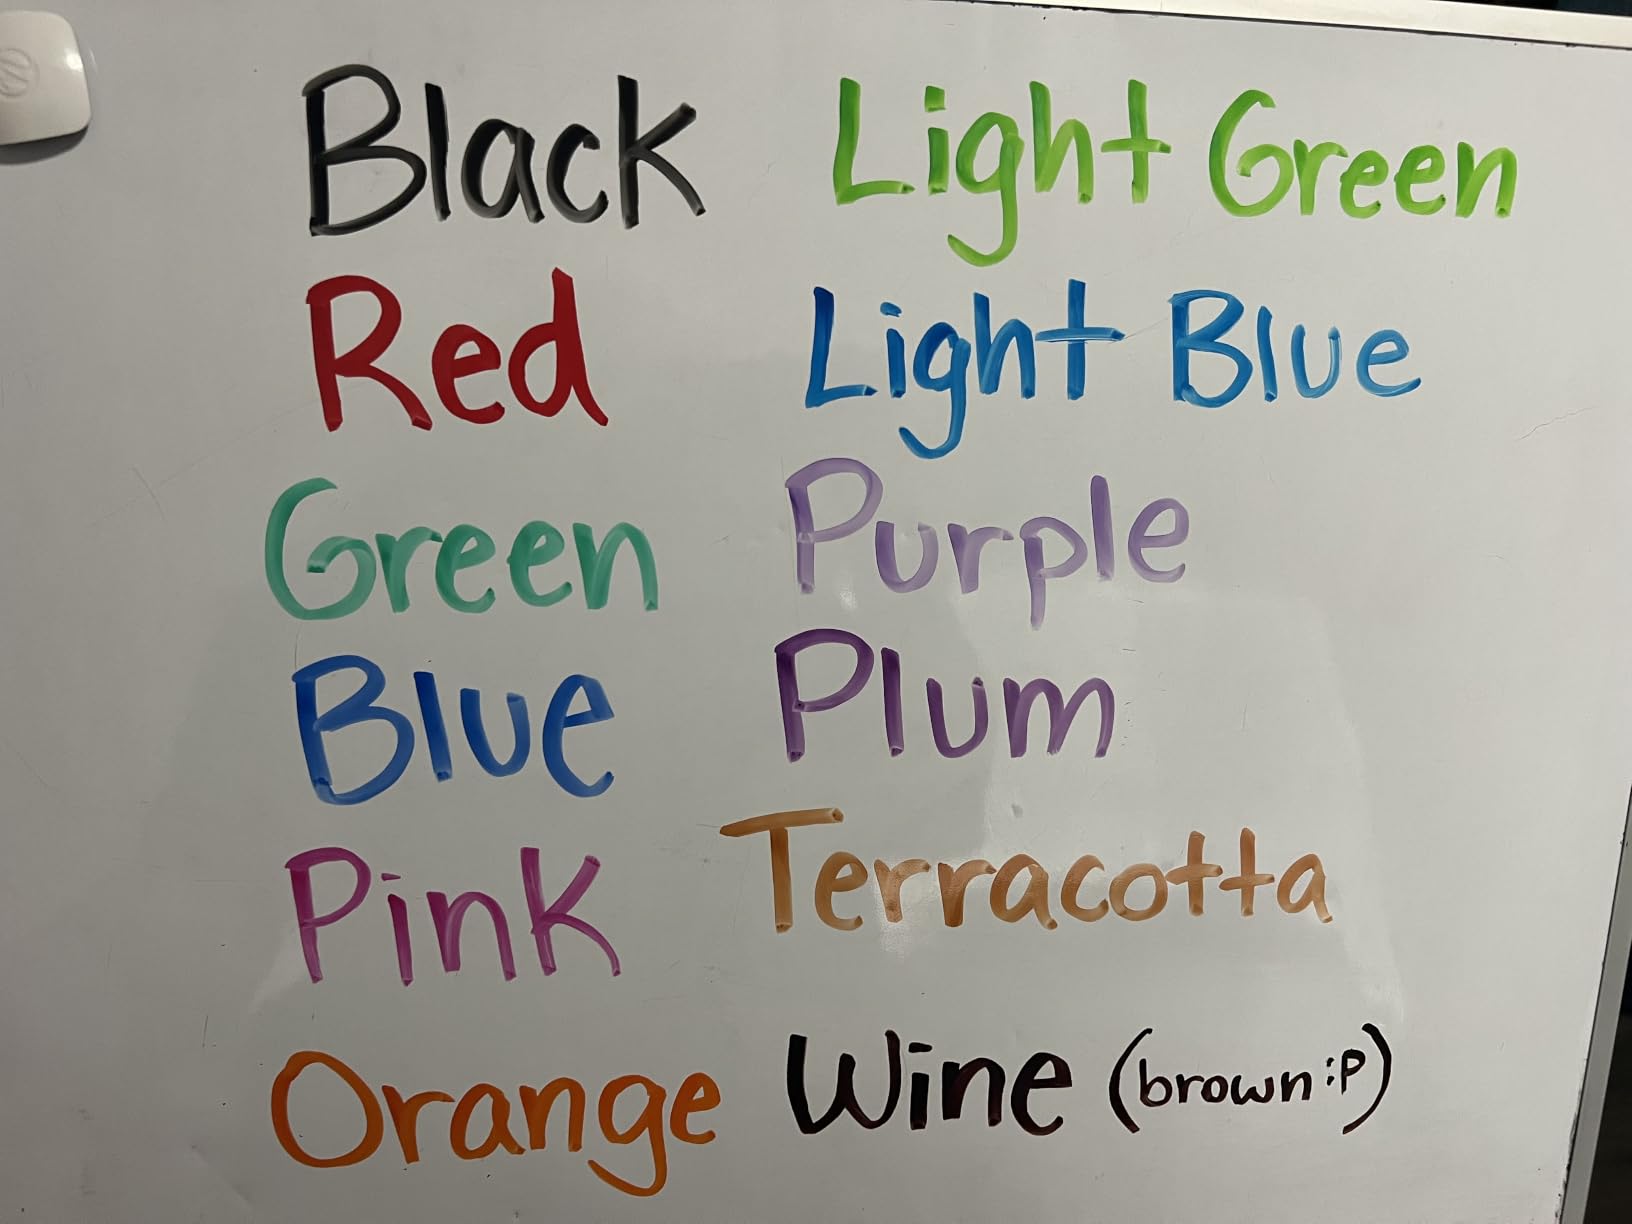 Black
Red
Green
Blue
Pink
Orange
Light Green
Light Blue
Purple
Plum
Terracotta
Wine (brown :P)